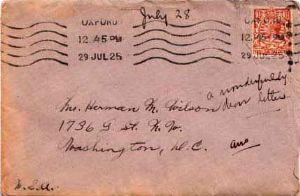 July 28
OXFORD
12.45 PM
29 JUL 25
OXFORD
12.45 PM
29 JUL 25
a wonderfully
dear letter
Mr. Herman M. Wilson
1736 G St. N.W.
Washington, D.C.
ans